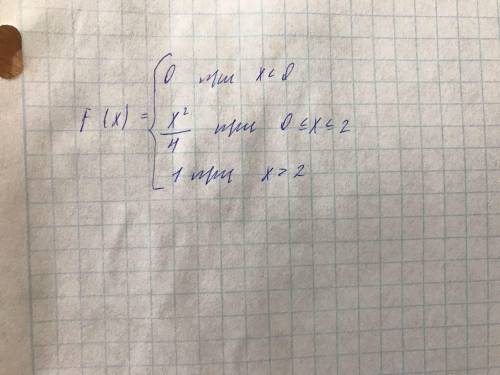 0 при x < 0
F(x) = { x²/4 при 0 ≤ x ≤ 2
1 при x > 2